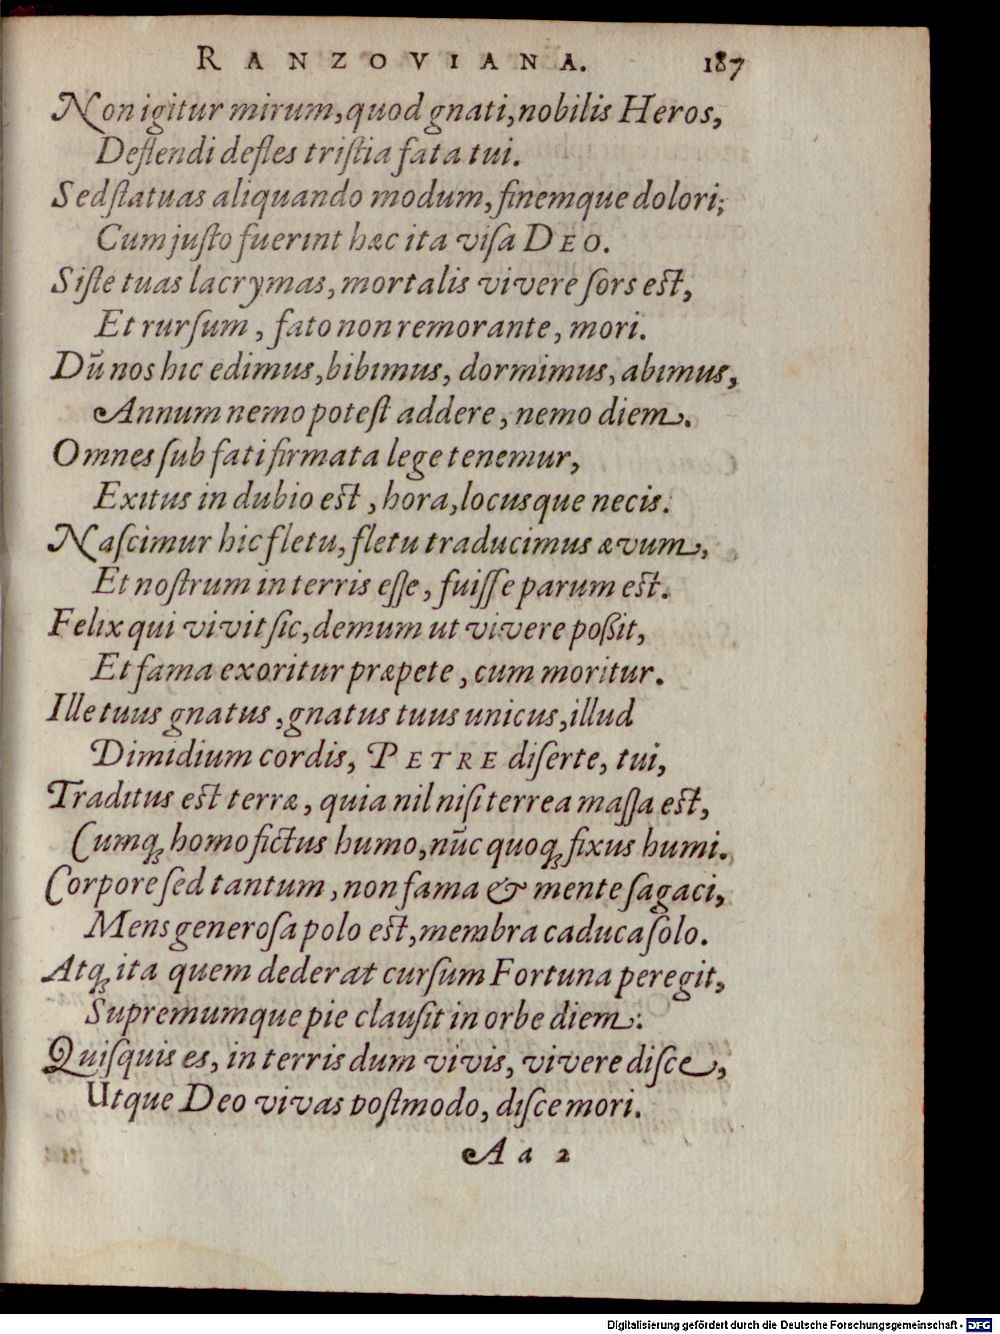 RANZOVIANA. 187
Non igitur mirum, quod gnati, nobilis Heros,
Deflendi defles triſtia fata tui.
Sed ſtatuas aliquando modum, finemque dolori;
Cum juſto fuerint hæc ita viſa DEO.
Siſte tuas lacrymas, mortalis vivere ſors eſt,
Et rurſum, fato non remorante, mori.
Dū nos hic edimus, bibimus, dormimus, abimus,
Annum nemo poteſt addere, nemo diem.
Omnes ſub fati firmata lege tenemur,
Exitus in dubio eſt, hora, locusque necis.
Naſcimur hic fletu, fletu traducimus ævum,
Et noſtrum in terris eſſe, fuiſſe parum eſt.
Felix qui vivit ſic, demum ut vivere poßit,
Et fama exoritur præpete, cum moritur.
Ille tuus gnatus, gnatus tuus unicus, illud
Dimidium cordis, PETRE diſerte, tui,
Traditus eſt terræ, quia nil niſi terrea maſſa eſt,
Cumq; homo fictus humo, nūc quoq; fixus humi.
Corpore ſed tantum, non fama & mente ſagaci,
Mens generoſa polo eſt, membra caduca ſolo.
Atq; ita quem dederat curſum Fortuna peregit,
Supremumque pie clauſit in orbe diem:
Quiſquis es, in terris dum vivis, vivere diſce,
Utque Deo vivas poſtmodo, diſce mori.
Aa 2
Digitalisierung gefördert durch die Deutsche Forschungsgemeinschaft - DFG